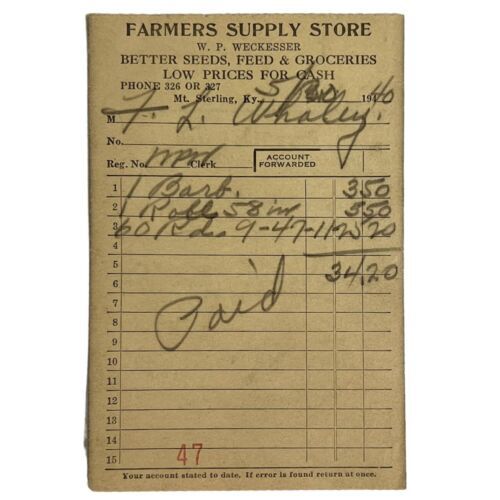 FARMERS SUPPLY STORE
W. P. WECKESSER
BETTER SEEDS, FEED & GROCERIES
LOW PRICES FOR CASH
PHONE 326 OR 327
Mt. Sterling, Ky., 194 40
M F. L. Whaley.
No.
Reg. No. Clerk ACCOUNT FORWARDED
1 1 Barb. 3 50
2 1 Roll 58 in 5 50
3 60 Rds. 9-47-11- 25 20
4
5 34,20
6
7 Paid
8
9
10
11
12
13
14
15 47
Your account stated to date. If error is found return at once.